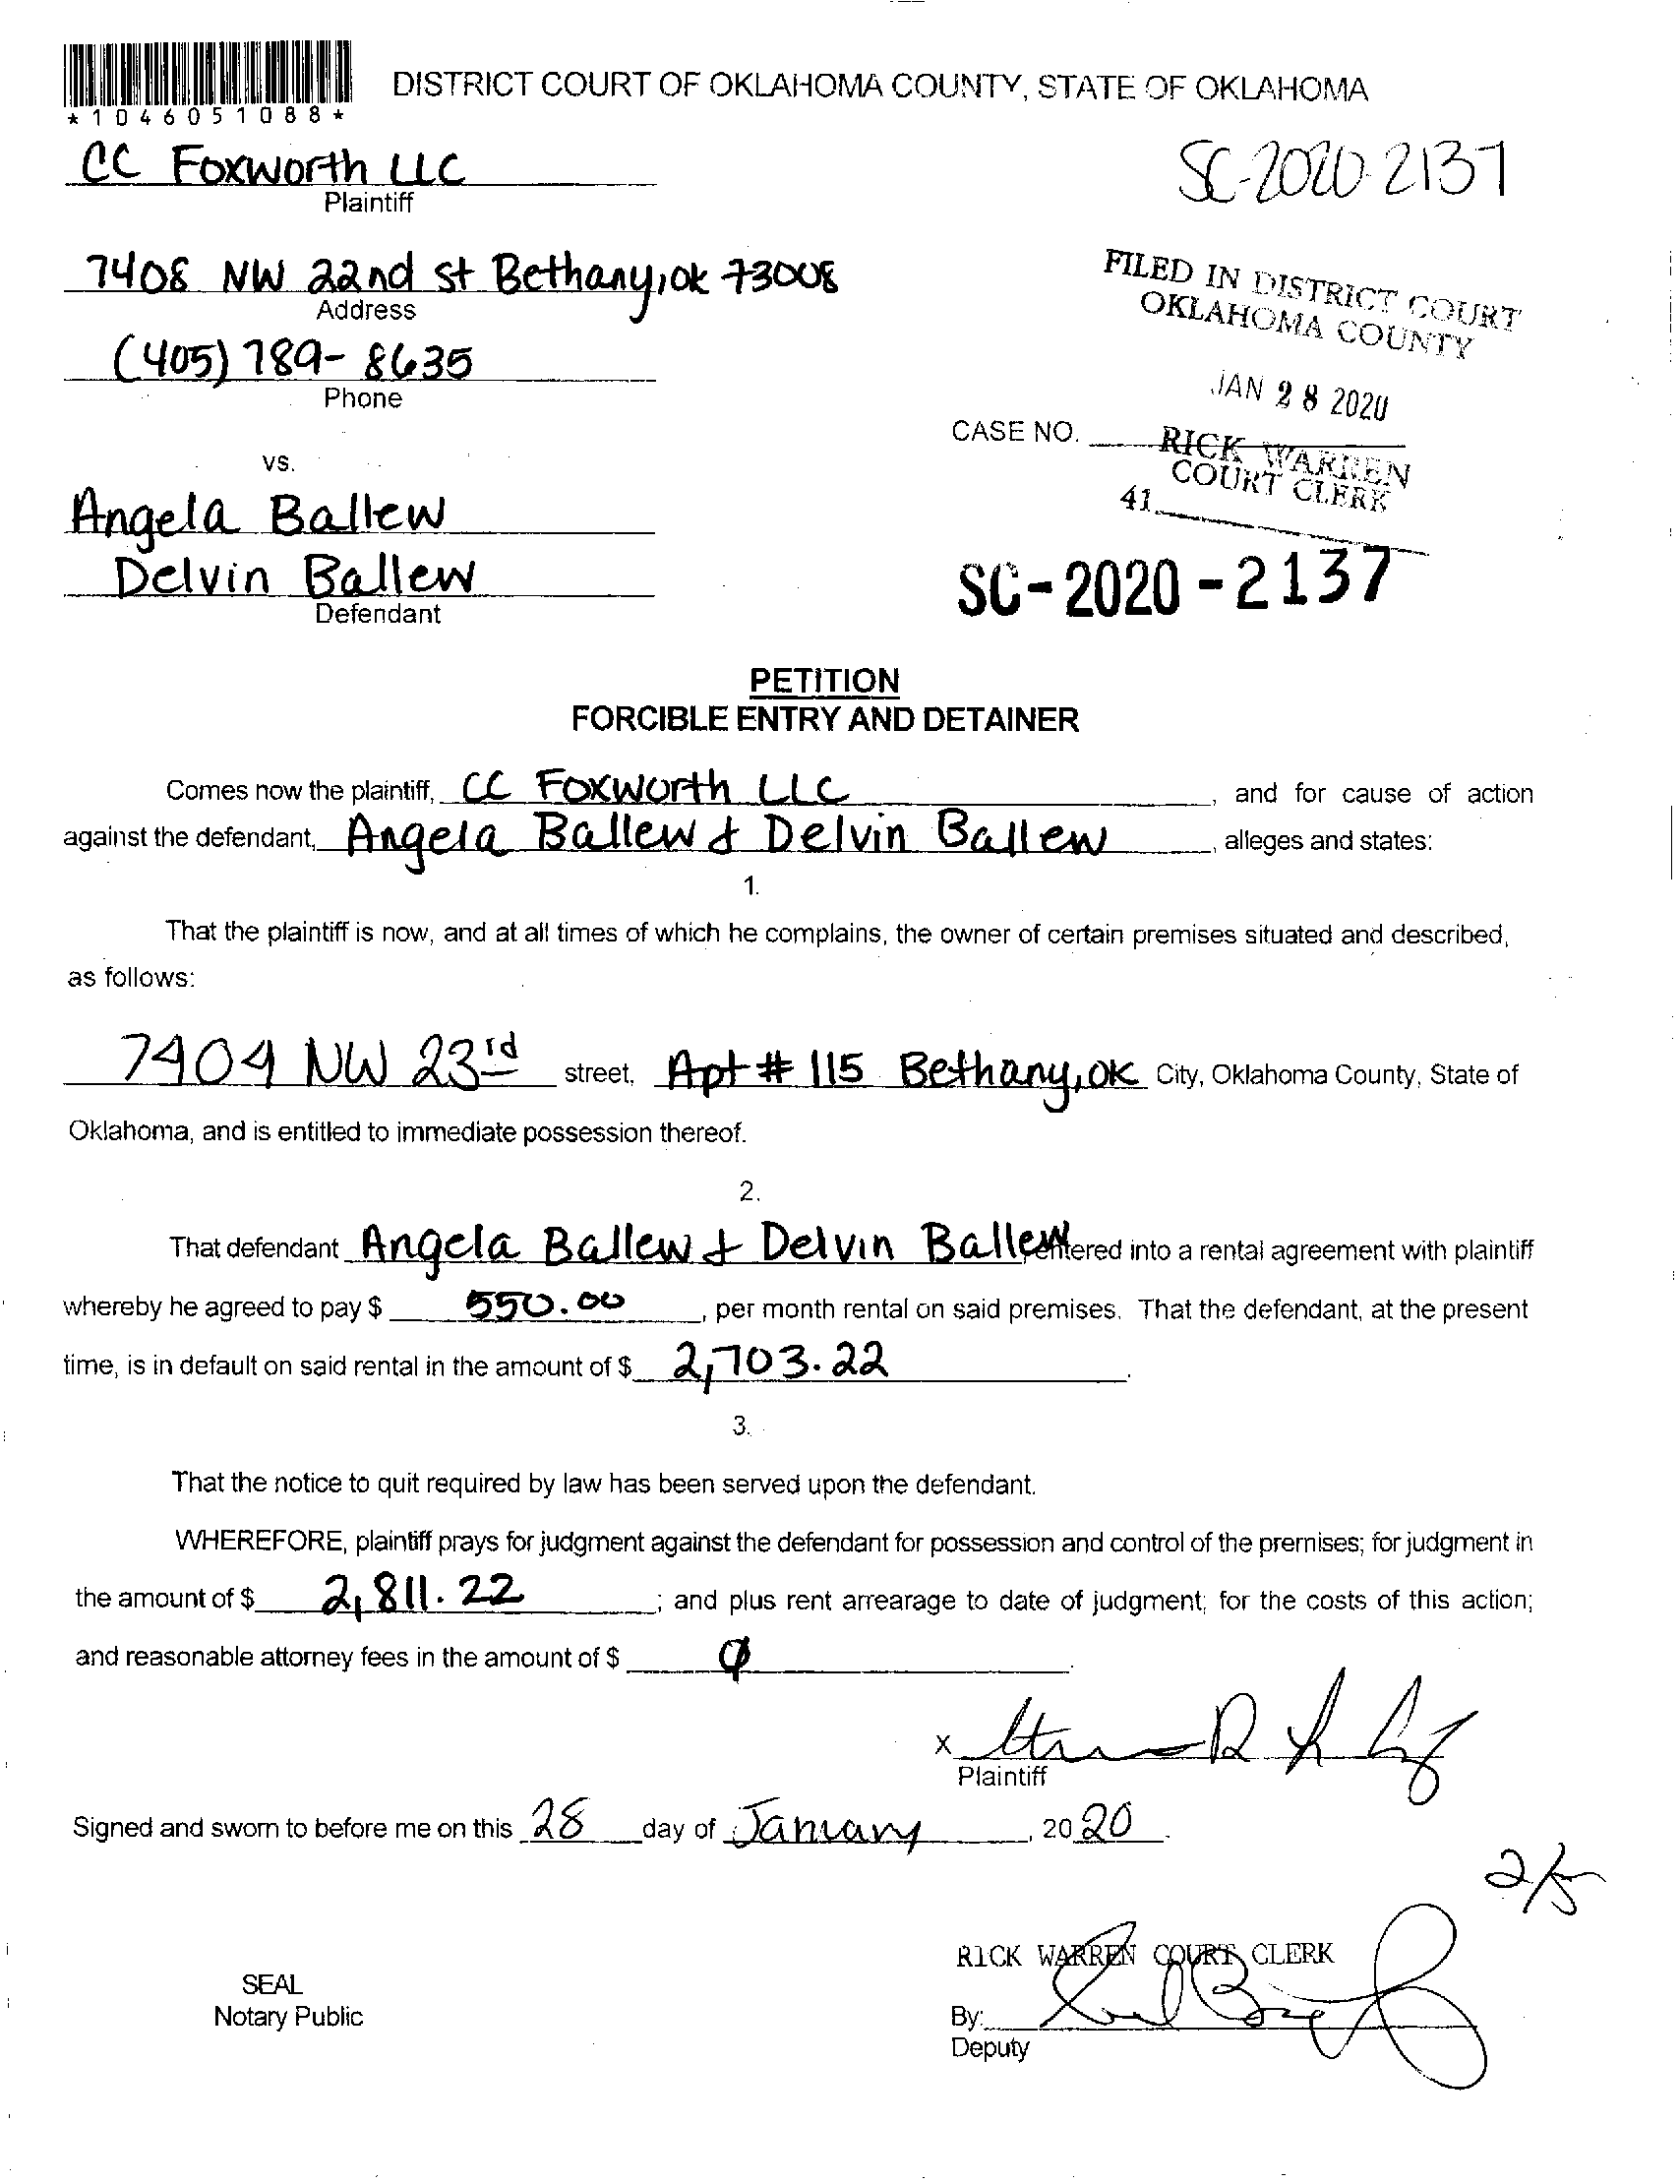 *1046051088*
DISTRICT COURT OF OKLAHOMA COUNTY, STATE OF OKLAHOMA
CC Foxworth LLC
Plaintiff
SC-2020-2137
7408 NW 22nd st Bethany, OK 73008
Address
FILED IN DISTRICT COURT
OKLAHOMA COUNTY
(405) 789-8635
Phone
JAN 28 2020
CASE NO.
RICK WARREN
COURT CLERK
41
vs.
Angela Ballew
Delvin Ballew
Defendant
SC-2020-2137
PETITION
FORCIBLE ENTRY AND DETAINER
Comes now the plaintiff, CC Foxworth LLC, and for cause of action
against the defendant, Angela Ballew & Delvin Ballew, alleges and states:
1.
That the plaintiff is now, and at all times of which he complains, the owner of certain premises situated and described,
as follows:
7404 NW 23rd street, Apt # 115 Bethany, OK City, Oklahoma County, State of
Oklahoma, and is entitled to immediate possession thereof.
2.
That defendant Angela Ballew & Delvin Ballew entered into a rental agreement with plaintiff
whereby he agreed to pay $ 550.00, per month rental on said premises. That the defendant, at the present
time, is in default on said rental in the amount of $ 2,703.22.
3.
That the notice to quit required by law has been served upon the defendant.
WHEREFORE, plaintiff prays for judgment against the defendant for possession and control of the premises; for judgment in
the amount of $ 2,811.22; and plus rent arrearage to date of judgment; for the costs of this action;
and reasonable attorney fees in the amount of $ 0.
X
Plaintiff
Signed and sworn to before me on this 28 day of January, 2020.
2/5
RICK WARREN COURT CLERK
SEAL
Notary Public
By:
Deputy